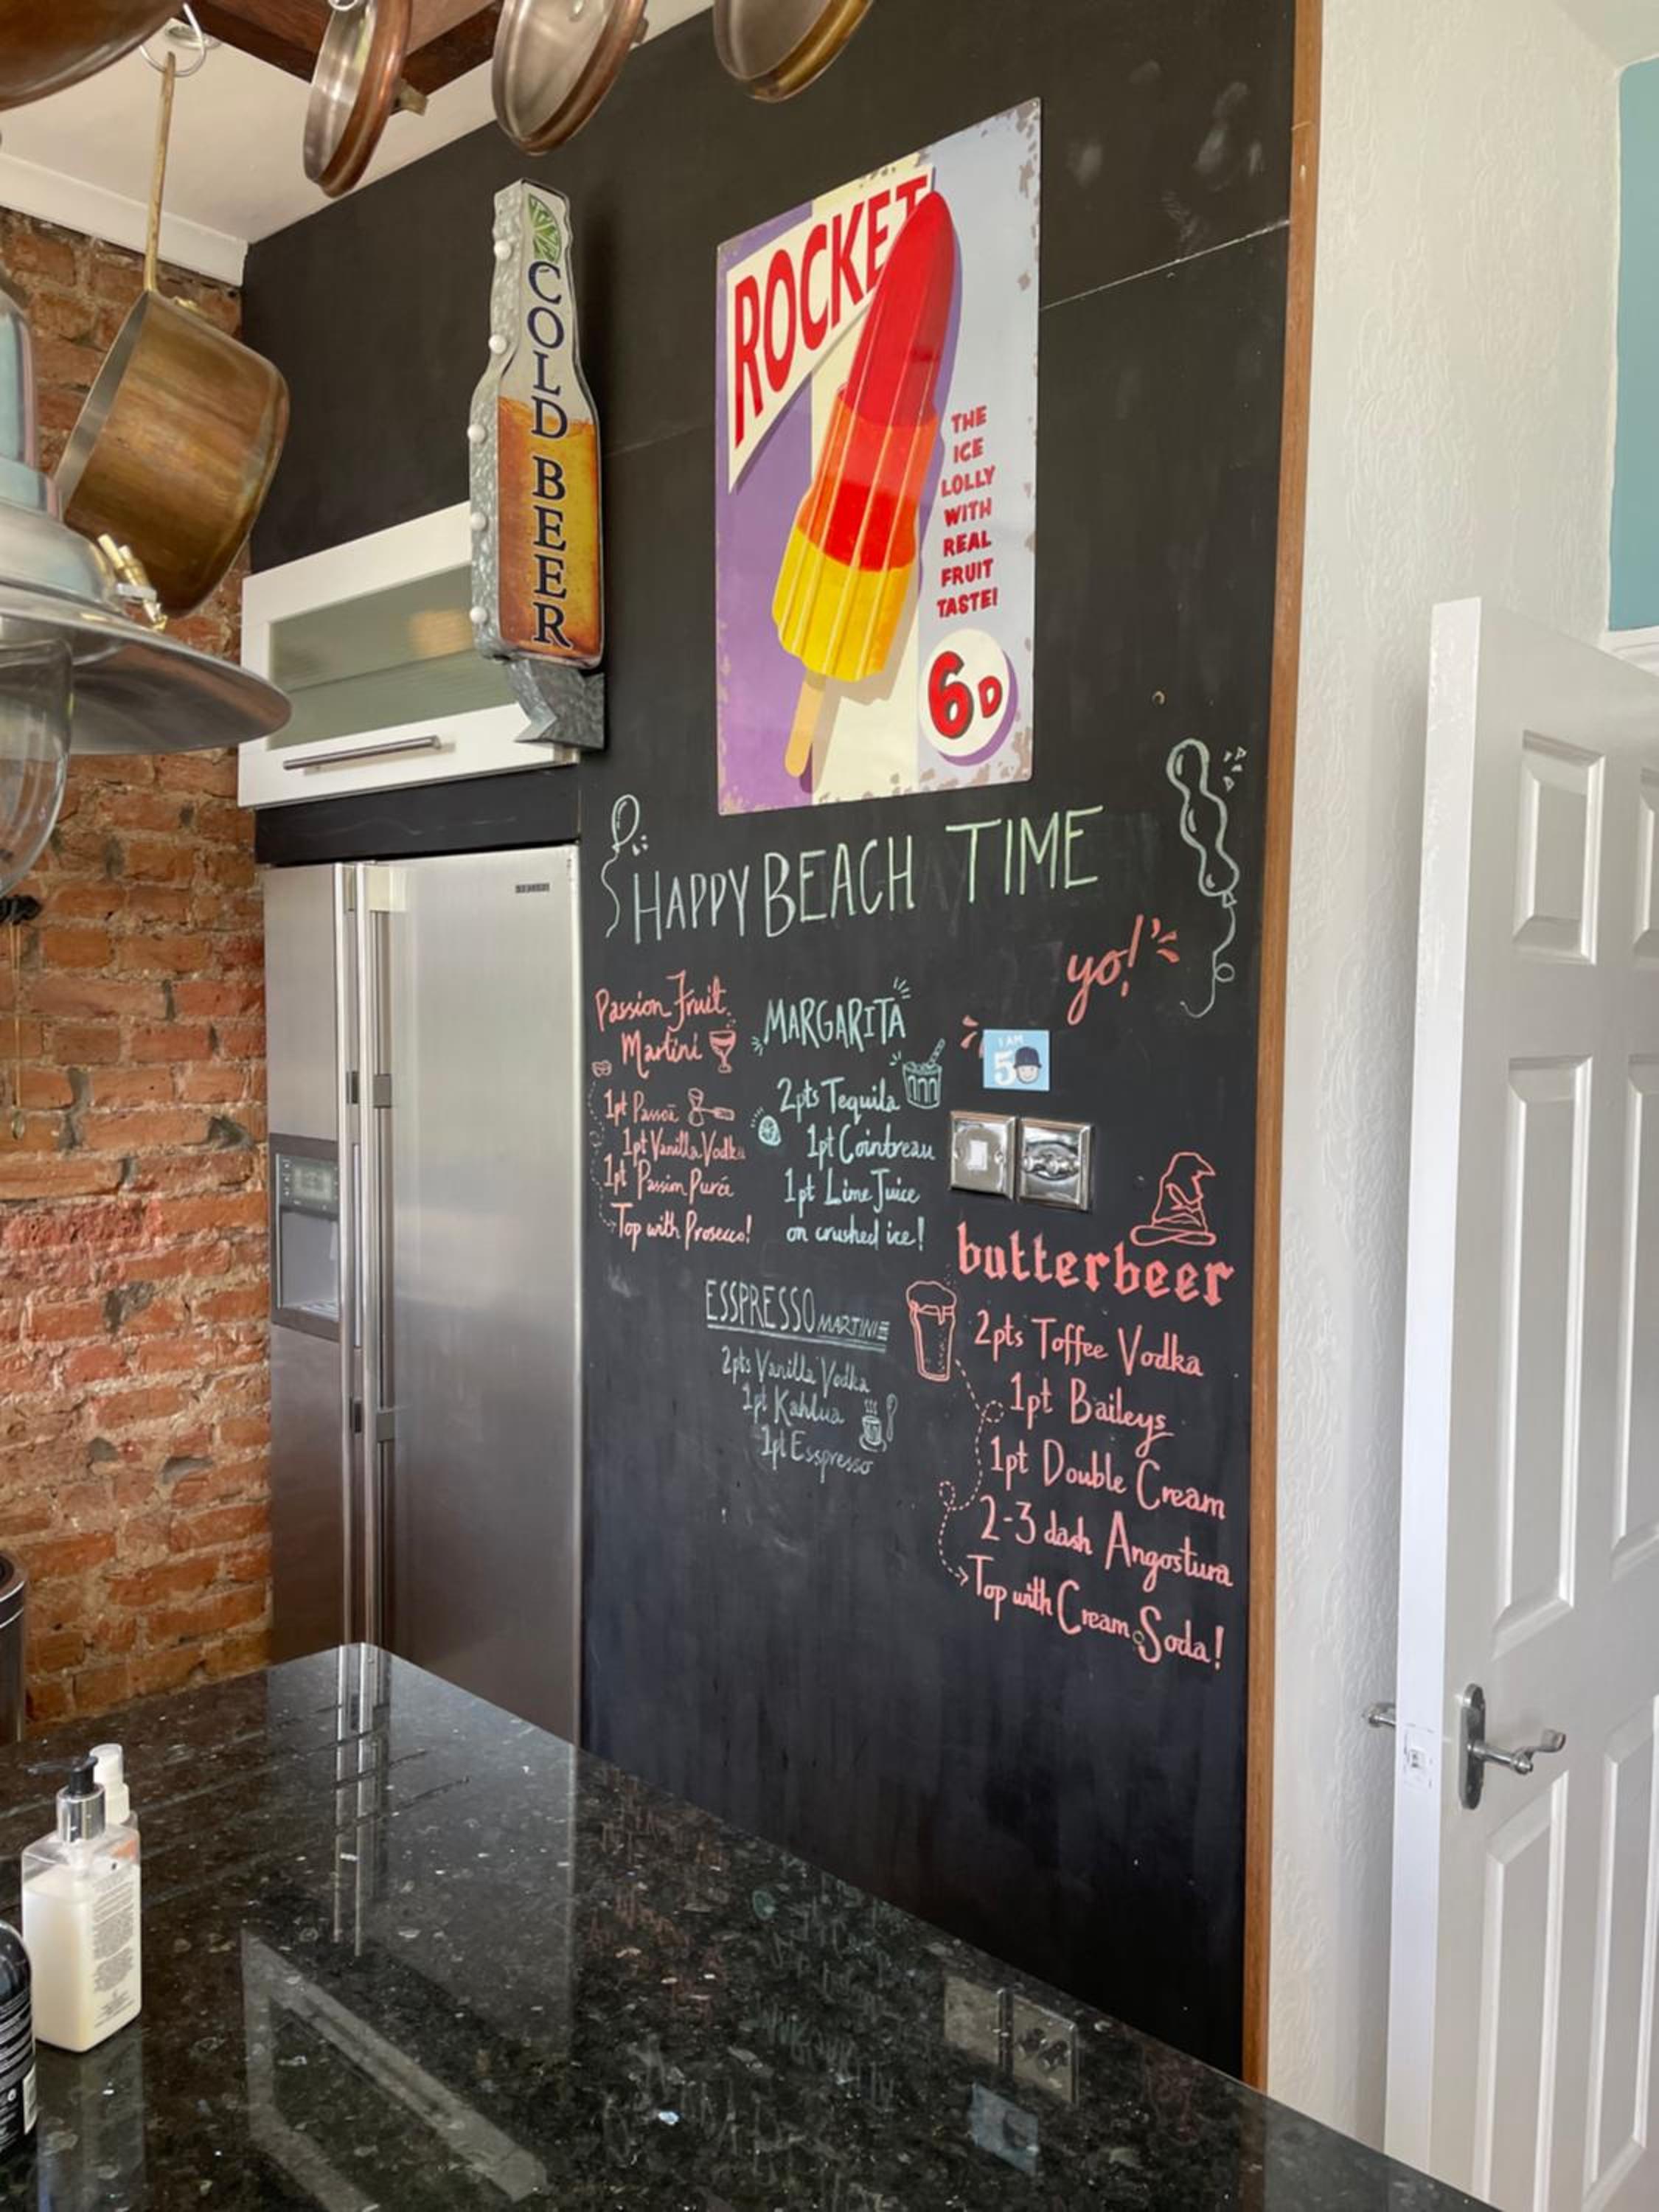 COLD BEER
ROCKET
THE
ICE
LOLLY
WITH
REAL
FRUIT
TASTE!
6D
HAPPY BEACH TIME
yo!
Passion Fruit
Martini
1pt Passoã
1pt Vanilla Vodka
1pt Passion Purée
Top with Prosecco!
MARGARITA
2pts Tequila
1pt Cointreau
1pt Lime Juice
on crushed ice!
I AM
50
ESSPRESSO MARTINI
2pts Vanilla Vodka
1pt Kahlua
1pt Esspresso
butterbeer
2pts Toffee Vodka
1pt Baileys
1pt Double Cream
2-3 dash Angostura
Top with Cream Soda!